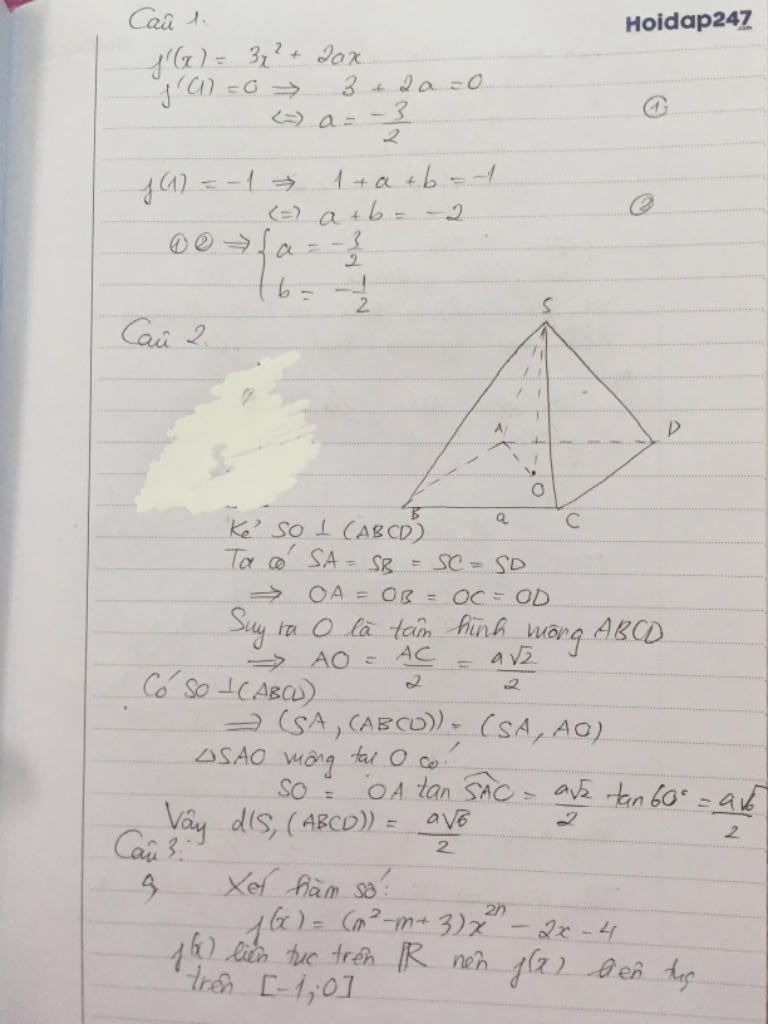 Câu 1.
Hoidap247
.com
f'(x) = 3x² + 2ax
f'(1) = 0 ⇒ 3 + 2a = 0
⇔ a = -3/2 ①
f(1) = -1 ⇒ 1 + a + b = -1
⇔ a + b = -2 ②
① ② ⇒ { a = -3/2
b = -1/2
Câu 2.
S
A
D
O
B
a
C
Kẻ SO ⊥ (ABCD)
Ta có SA = SB = SC = SD
⇒ OA = OB = OC = OD
Suy ra O là tâm hình vuông ABCD
⇒ AO = AC/2 = a√2/2
Có SO ⊥ (ABCD)
⇒ (SA, (ABCD)) = (SA, AO)
△SAO vuông tại O có:
SO = OA tan SAC = a√2/2 tan60° = a√6/2
Vậy d(S, (ABCD)) = a√6/2
Câu 3:
Xét hàm số:
f(x) = (m² - m + 3)x²ⁿ - 2x - 4
f(x) liên tục trên ℝ nên f(x) liên tục
trên [-1; 0]